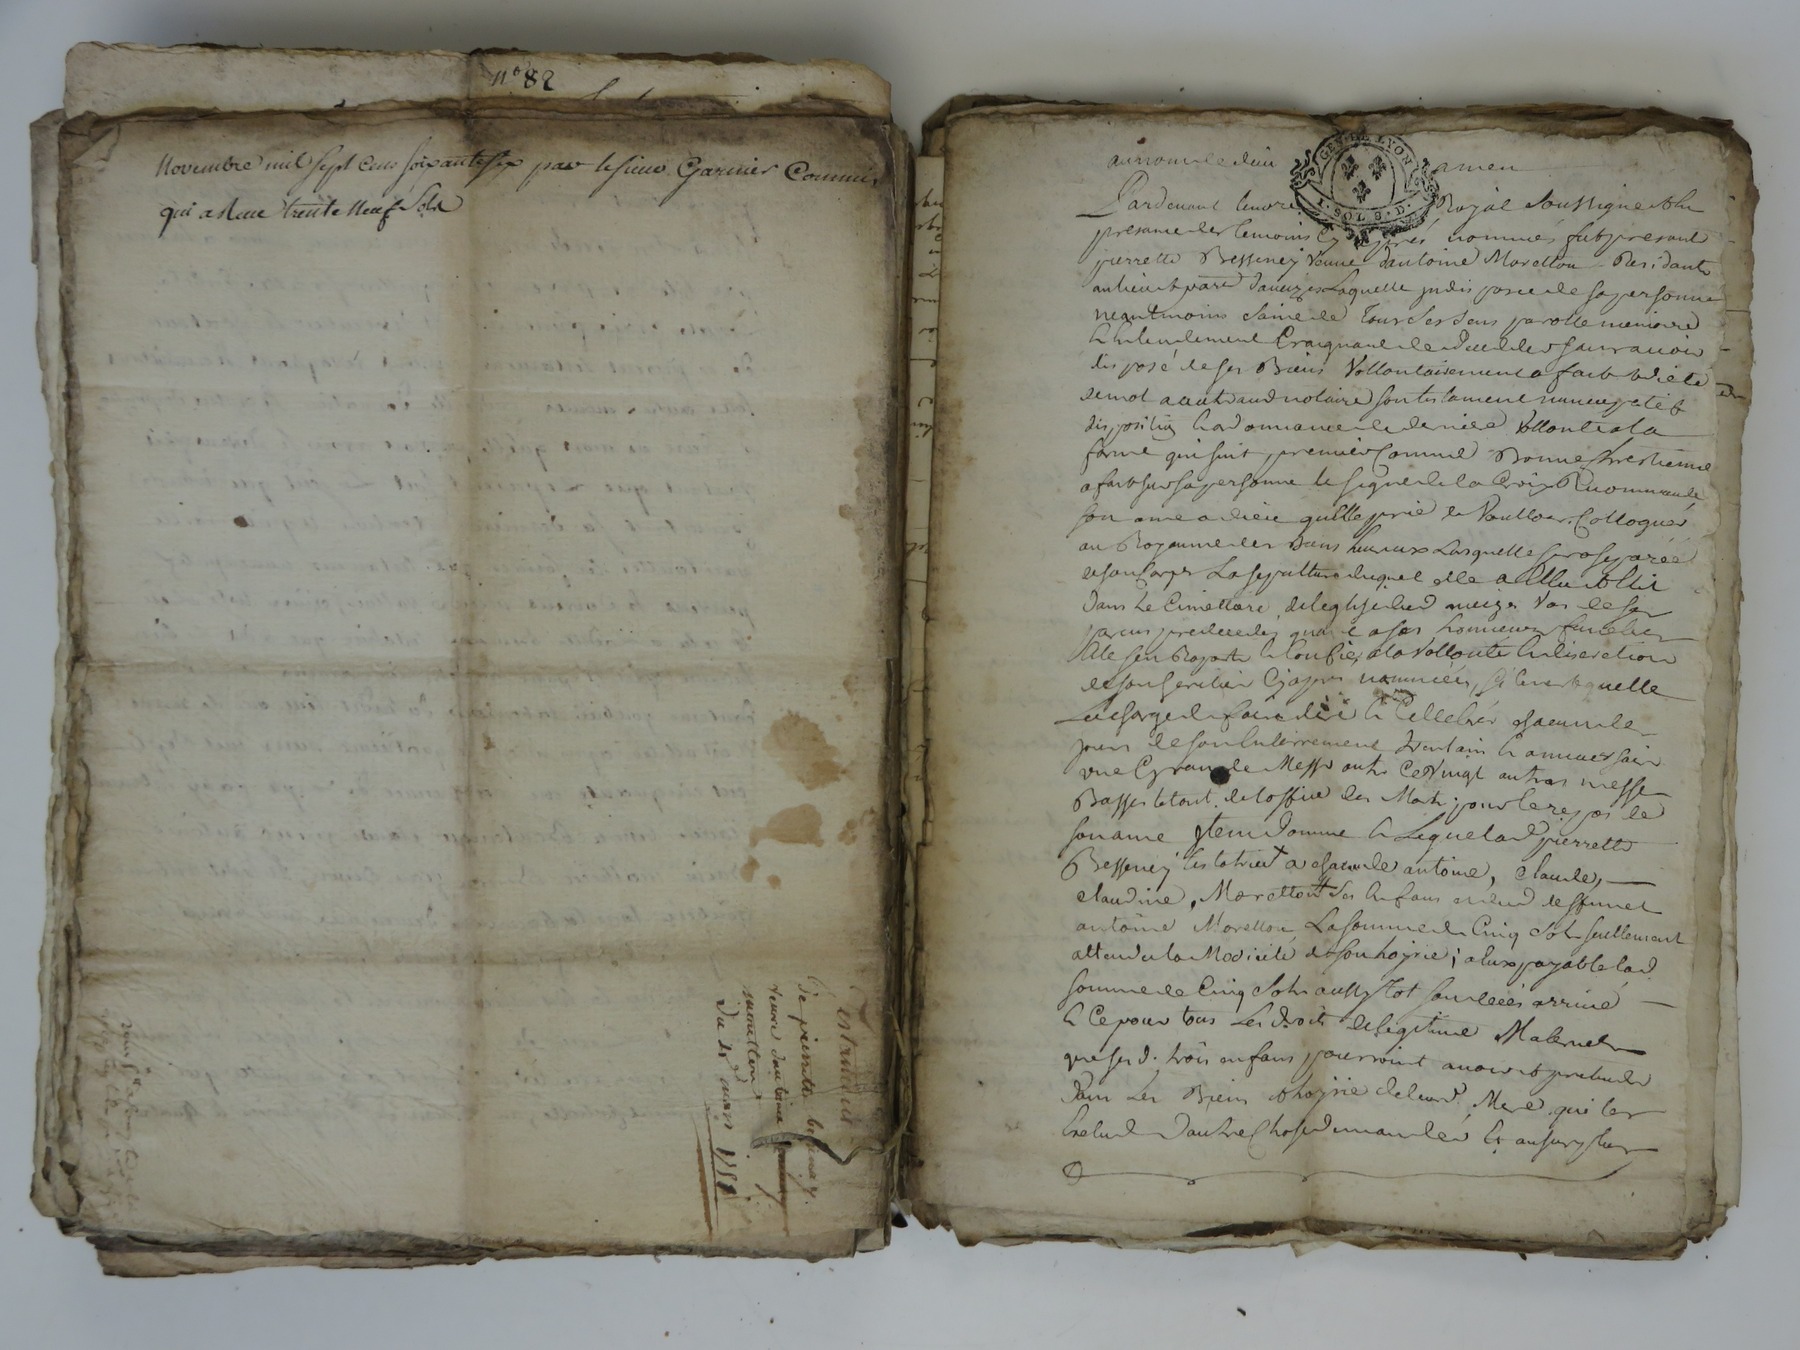 n° 82
Novembre mil sept cens soixante six par le sieur Garnier Commis
qui a Reçu trente neuf Sols
Testament
de pierrette bessenay
veuve d'antoine
moretton
du 18 mars
au nom de dieu amen
GEN DE LYON
1 · SOL 8 · D
Pardevant le no.re Royal Soussigné & En
presance des temoins Cy après nommés fut presante
pierrette Bessenay Veuve d'antoine Moretton Residante
au lieu & parr.e d'aveizes Laquelle jndisposée de sa personne
neantmoins Saine de Tous Ses Sens parolle memoire
& Entendement Craignant de deceder sans avoir
disposé de ses Biens Vollontairement a fait & dicté
de mot a autre aud notaire son testament nuncupatif
disposition & ordonnance de derniere Vollonté a la
forme qui suit, premier Comme Bonne Chrestienne
a fait sur sa personne le signe de la Croix Recommandé
son ame a dieu quelle prie de Voulloir Colloquer
au Royaume des Biens heureux Lorsquelle sera separée
de son Corps La sepulture duquel elle a Elleu & Elit
Dans Le Cimettiere de leglise dud aveize Vas de ses
parens predecedés quand a ses honneurs funebres
Elle s'en Raporte & Confie a la Vollonté & discretion
de son heritier Cy apres nommée, heritiere laquelle
Elle charge de faire dire & Cellebrer chacun des
jours de son Enterrement trentain & anniversaire
une Grande Messe outre Ce Vingt autres messe
Basses le tout de loffice des Morts pour le repos de
son ame jtem donne & Legue lad pierrette
Bessenay testatrice a chacun de antoine, Claude,
claudine, Moretton Ses Enfans et dud deffunct
antoine Moretton La somme de Cinq Sols seullement
attendu la Modicité de son hoyrie; a Eux payable lad
somme de Cinq Sols aussytot son deces arrivé
& Ce pour tous Les droits de legitime Maternels
que sesd. trois enfans pourroint avoir & pretendre
dans Les Biens & hoyrie de leurd Mere qui les
Exclud d'autre Chose demander & au surplus